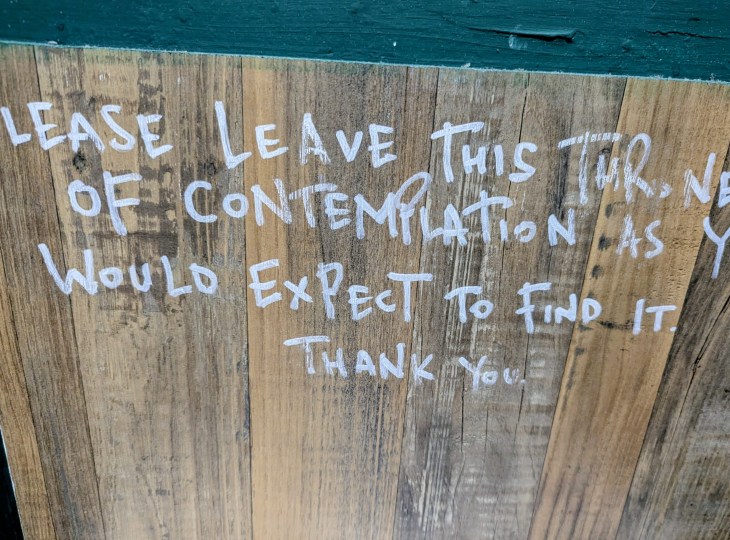 LEASE LEAVE THIS THRONE
OF CONTEMPLATION AS Y
WOULD EXPECT TO FIND IT.
THANK YOU.